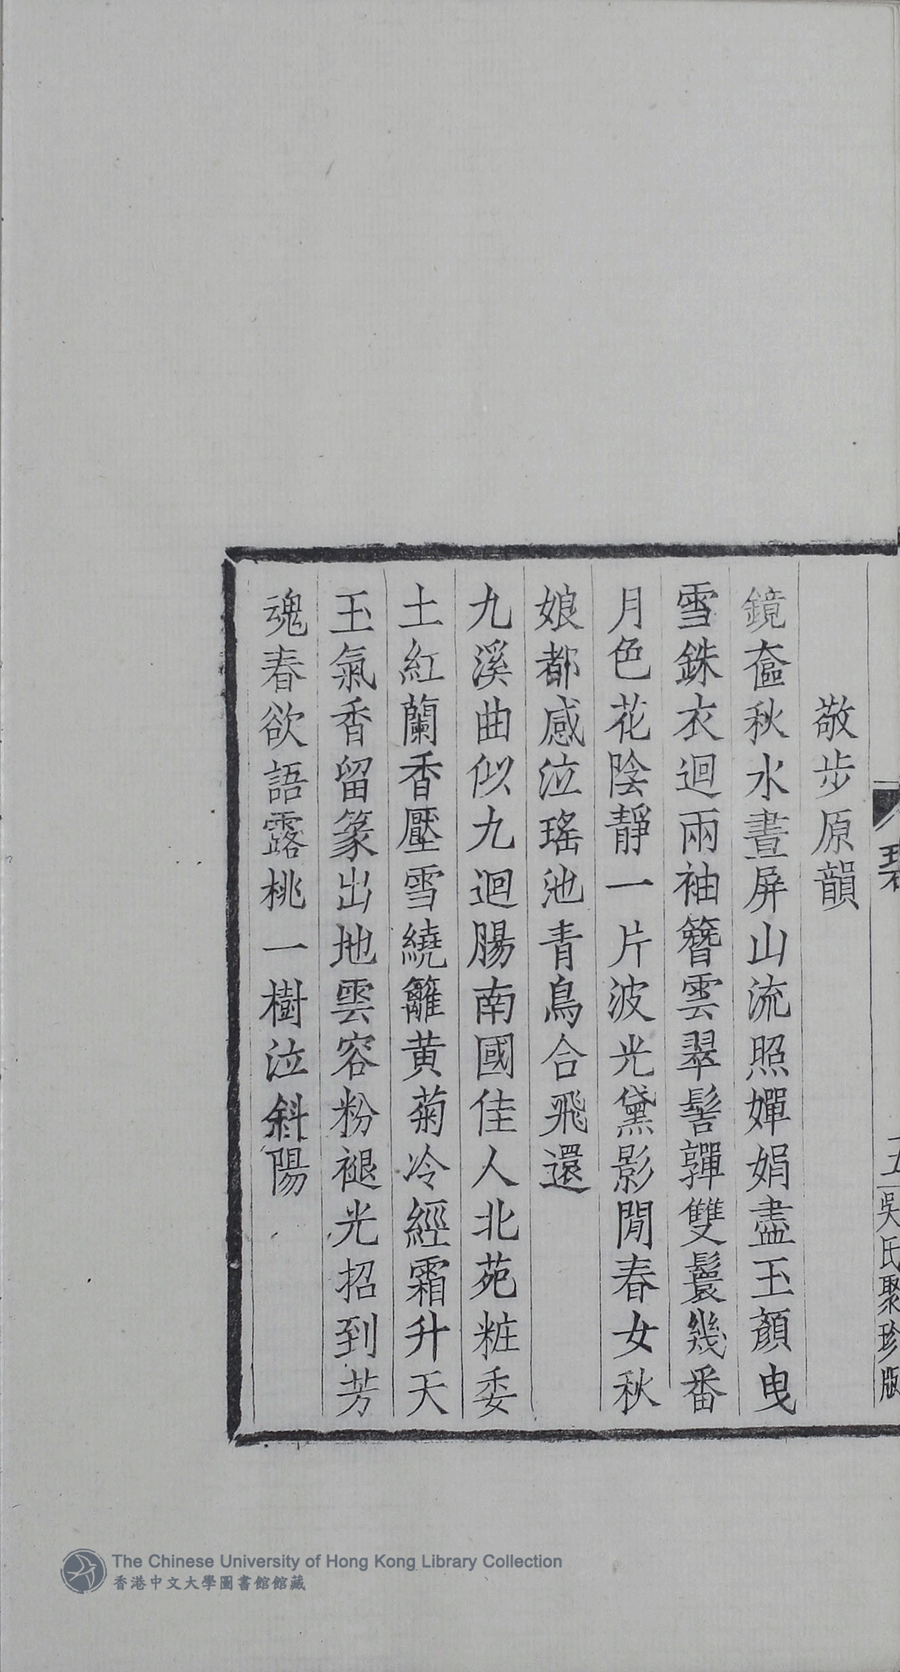 五 吳氏聚珍版
敬步原韻
鏡奩秋水晝屏山流照嬋娟盡玉顏曳
雪銖衣迴兩袖簪雲翠髻嚲雙鬟幾番
月色花陰靜一片波光黛影閒春女秋
娘都感泣瑤池青鳥合飛還
九溪曲似九迴腸南國佳人北苑粧委
土紅蘭香壓雪繞籬黃菊冷經霜升天
玉氣香留篆出地雲容粉褪光招到芳
魂春欲語露桃一樹泣斜陽
The Chinese University of Hong Kong Library Collection
香港中文大學圖書館館藏